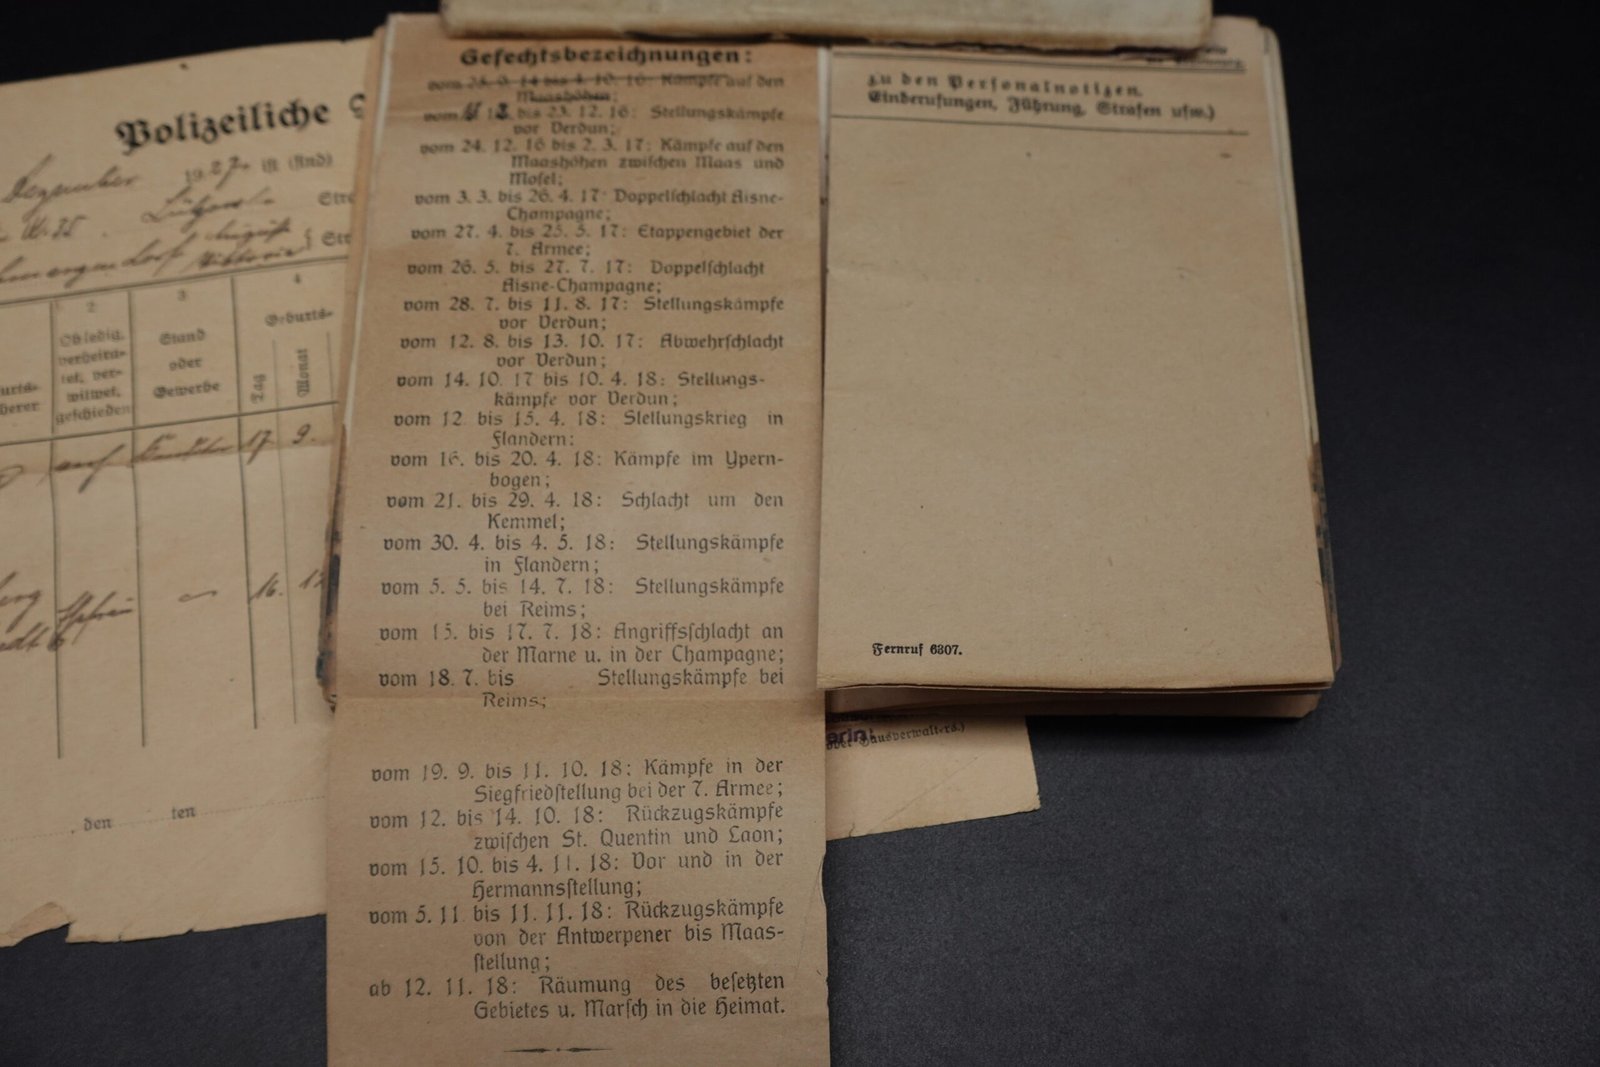 Polizeiliche
1927. ist (sind)
2
3
4
Ob ledig,
verheira-
tet, ver-
witwet,
geschieden
Stand
oder
Gewerbe
Geburts-
Tag
Monat
17 9.
16.
, den ten
Gefechtsbezeichnungen:
auf den
Maashöhen;
bis 23. 12. 16: Stellungskämpfe
vor Verdun;
vom 24. 12. 16 bis 2. 3. 17: Kämpfe auf den
Maashöhen zwischen Maas und
Mosel;
vom 3. 3. bis 26. 4. 17: Doppelschlacht Aisne-
Champagne;
vom 27. 4. bis 25. 5. 17: Etappengebiet der
7. Armee;
vom 26. 5. bis 27. 7. 17: Doppelschlacht
Aisne-Champagne;
vom 28. 7. bis 11. 8. 17: Stellungskämpfe
vor Verdun;
vom 12. 8. bis 13. 10. 17: Abwehrschlacht
vor Verdun;
vom 14. 10. 17 bis 10. 4. 18: Stellungs-
kämpfe vor Verdun;
vom 12. bis 15. 4. 18: Stellungskrieg in
Flandern:
vom 16. bis 20. 4. 18: Kämpfe im Ypern-
bogen;
vom 21. bis 29. 4. 18: Schlacht um den
Kemmel;
vom 30. 4. bis 4. 5. 18: Stellungskämpfe
in Flandern;
vom 5. 5. bis 14. 7. 18: Stellungskämpfe
bei Reims;
vom 15. bis 17. 7. 18: Angriffsschlacht an
der Marne u. in der Champagne;
vom 18. 7. bis Stellungskämpfe bei
Reims;
vom 19. 9. bis 11. 10. 18: Kämpfe in der
Siegfriedstellung bei der 7. Armee;
vom 12. bis 14. 10. 18: Rückzugskämpfe
zwischen St. Quentin und Laon;
vom 15. 10. bis 4. 11. 18: Vor und in der
Hermannsstellung;
vom 5. 11 bis 11. 11. 18: Rückzugskämpfe
von der Antwerpener bis Maas-
stellung;
ab 12. 11. 18: Räumung des besetzten
Gebietes u. Marsch in die Heimat.
zu den Personalnotizen.
Einberufungen, Führung, Strafen usw.)
Fernruf 6307.
oder Hausverwalters.)